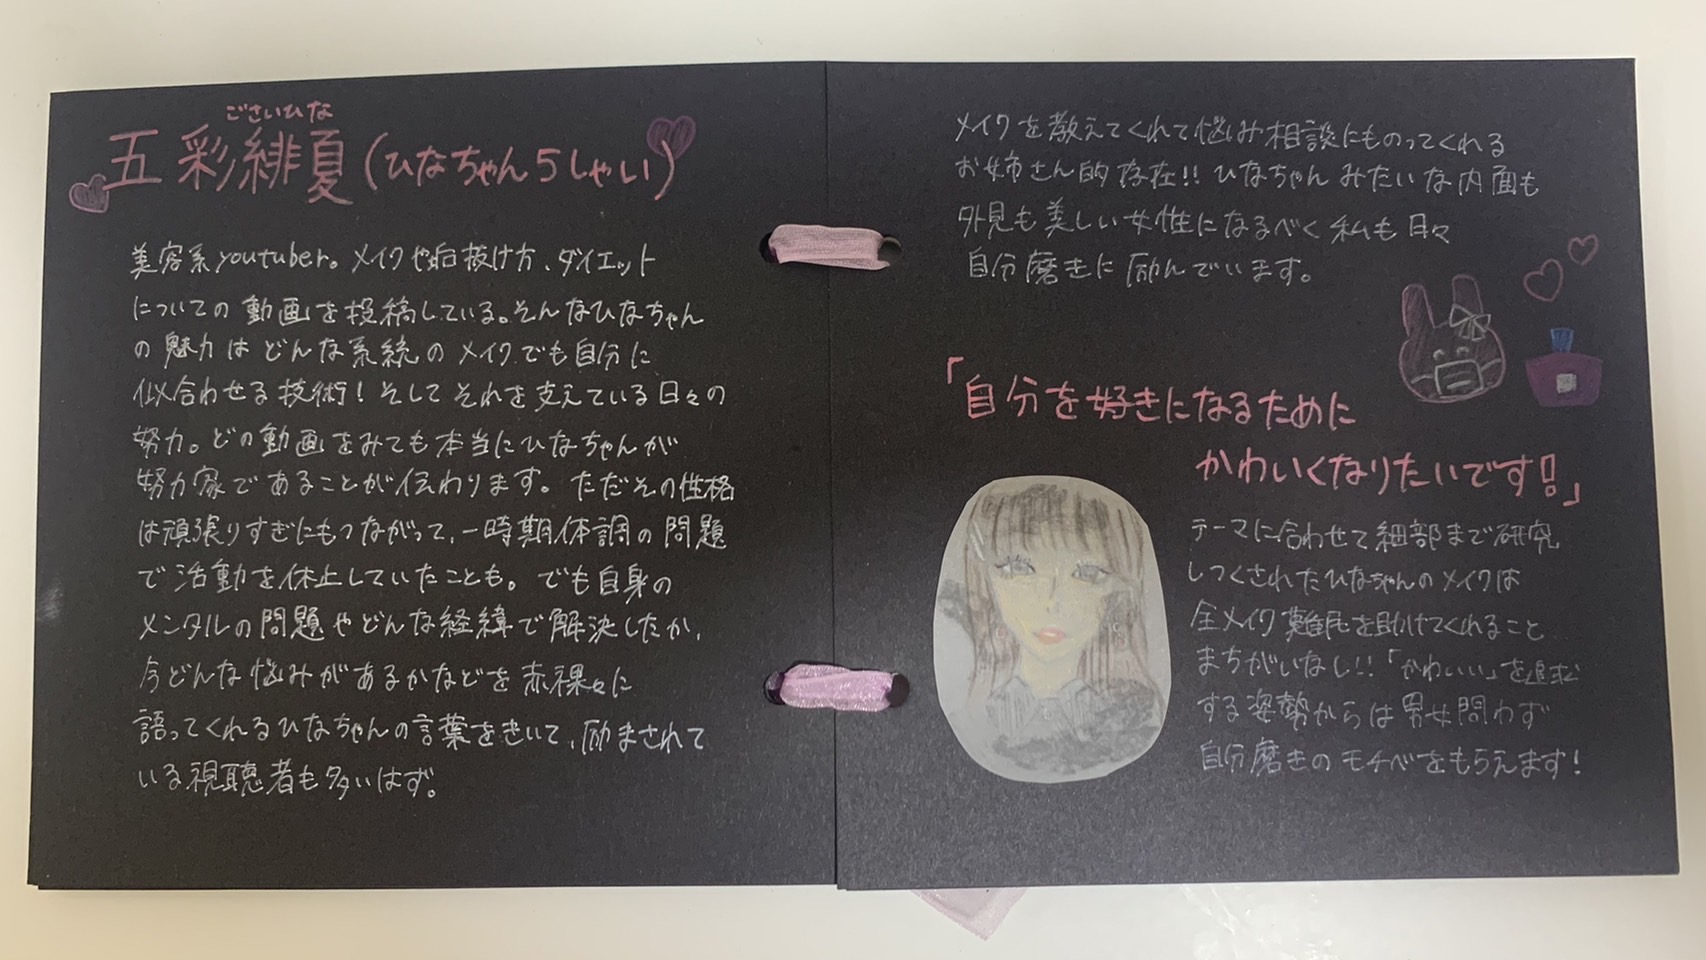 ごさいひな
五彩緋夏(ひなちゃん5しゃい)
美容系youtuber。メイクや垢抜け方、ダイエット
についての動画を投稿している。そんなひなちゃん
の魅力はどんな系統のメイクでも自分に
似合わせる技術!そしてそれを支えている日々の
努力。どの動画をみても本当にひなちゃんが
努力家であることが伝わります。ただその性格
は頑張りすぎにもつながって、一時期体調の問題
で活動を休止していたことも。でも自身の
メンタルの問題やどんな経緯で解決したか、
今どんな悩みがあるかなどを赤裸々に
語ってくれるひなちゃんの言葉をきいて、励まされて
いる視聴者も多いはず。
メイクを教えてくれて悩み相談にものってくれる
お姉さん的存在!!ひなちゃんみたいな内面も
外見も美しい女性になるべく私も日々
自分磨きに励んでいます。
「自分を好きになるために
かわいくなりたいです!」
テーマに合わせて細部まで研究
しつくされたひなちゃんのメイクは
全メイク難民を助けてくれること
まちがいなし!!「かわいい」を追求
する姿勢からは男女問わず
自分磨きのモチベをもらえます!